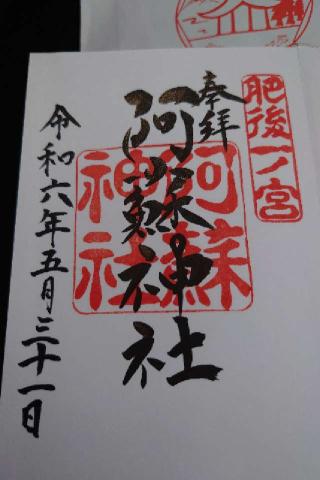 肥後一ノ宮
奉拝
阿蘇神社
阿蘇
神社
令和六年五月三十一日